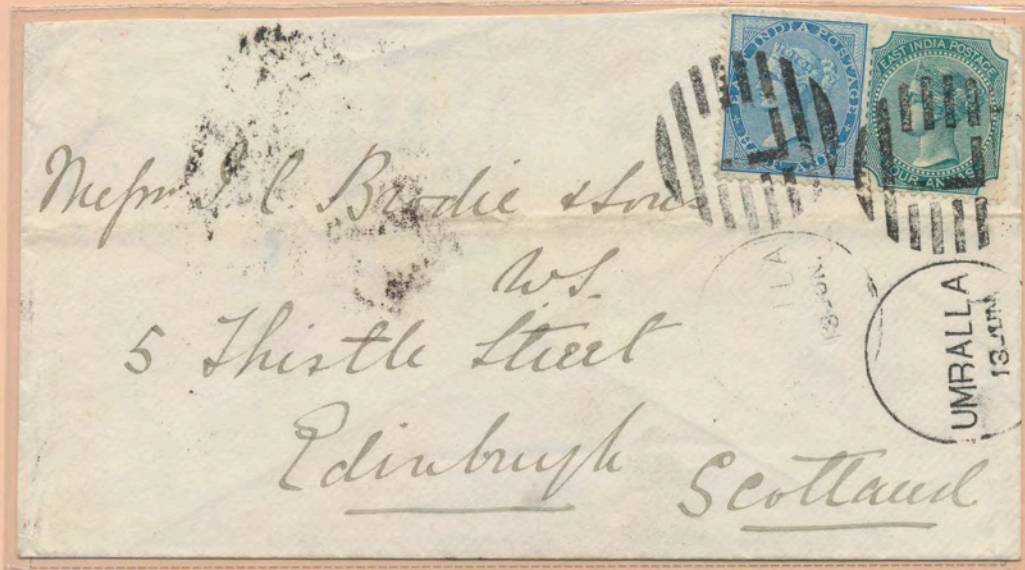 EAST INDIA POSTAGE
HALF ANNA
EAST INDIA POSTAGE
FOUR ANNAS
Messrs J. C. Brodie & Sons
W.S.
5 Thistle Street
Edinburgh
Scotland
LLA
13-JUN
UMBALLA
13-JUN